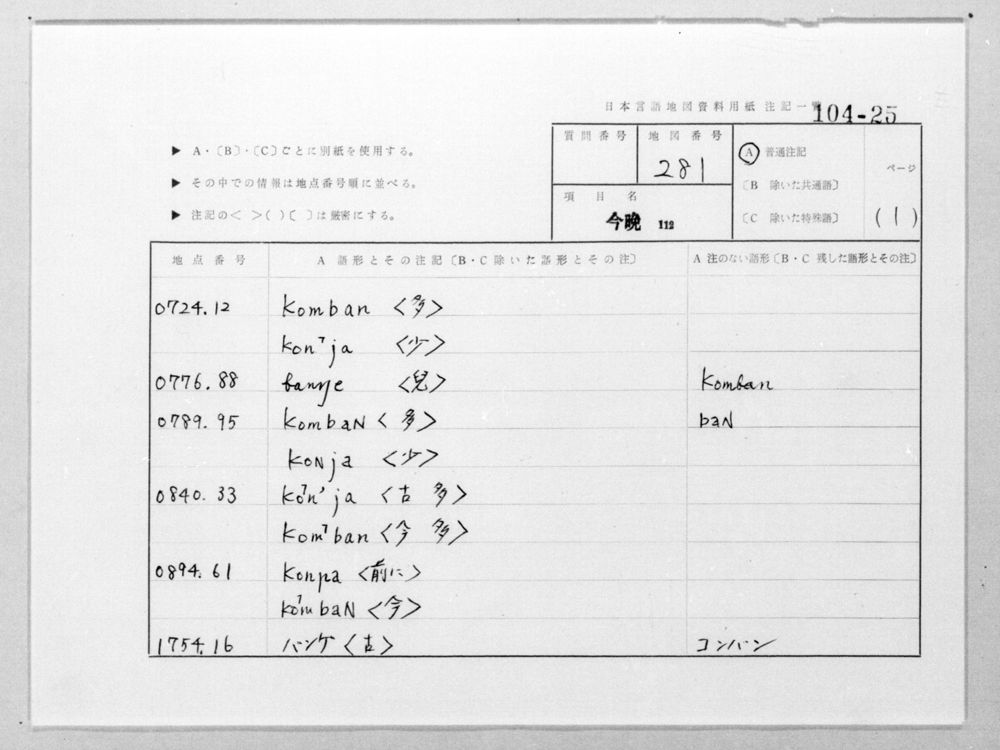 日本言語地図資料用紙 注記一覧
104-25
▶ A・〔B〕・〔C〕ごとに別紙を使用する。
▶ その中での情報は地点番号順に並べる。
▶ 注記の< >( )〔 〕は厳密にする。
質問番号 地図番号
281
項目名
今晩 112
A 普通注記
〔B 除いた共通語〕
〔C 除いた特殊語〕
ページ
(1)
地点番号 A 語形とその注記〔B・C除いた語形とその注〕 A 注のない語形〔B・C 残した語形とその注〕
0724.12 komban <多>
kon˺ja <少>
0776.88 <児> komban
0789.95 kombaN <多> baN
koNja <少>
0840.33 ko˺n'ja <古 多>
kom˺ban <今 多>
0894.61 <前に>
ko˺mbaN <今>
1754.16 バンゲ <古> コンバン